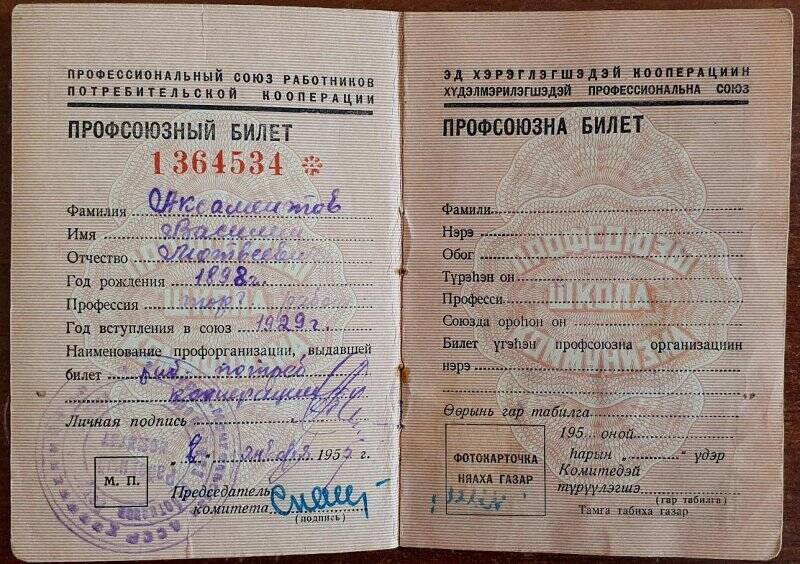 ПРОФЕССИОНАЛЬНЫЙ СОЮЗ РАБОТНИКОВ
ПОТРЕБИТЕЛЬСКОЙ КООПЕРАЦИИ
ПРОФСОЮЗНЫЙ БИЛЕТ
1364534 *
Фамилия Аксаментов
Имя Василий
Отчество Матвеевич
Год рождения 1898 г.
Профессия торг. работ
Год вступления в союз 1929 г.
Наименование профорганизации, выдавшей
билет потреб
кооперации
Личная подпись
"2" января 1955 г.
М. П.
Председатель
комитета
(подпись)
ЭД ХЭРЭГЛЭГШЭДЭЙ КООПЕРАЦИИН
ХҮДЭЛМЭРИЛЭГШЭДЭЙ ПРОФЕССИОНАЛЬНА СОЮЗ
ПРОФСОЮЗНА БИЛЕТ
Фамили
Нэрэ
Обог
Түрэһэн он
Професси
Союзда ороһон он
Билет үгэһэн профсоюзна организациин
нэрэ
Өөрынь гар табилга
195 оной
һарын " " үдэр
ФОТОКАРТОЧКА
НЯАХА ГАЗАР
Комитедэй
түрүүлэгшэ
(гар табилга)
Тамга табиха газар